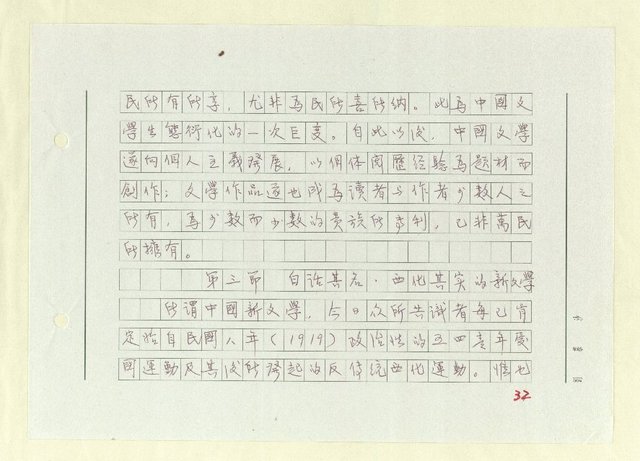 民所有所享，尤非為民所喜所納。此為中國文
學生態衍化的一次巨變。自此以後，中國文學
遂向個人主義發展，以個体閱歷經驗為題材而
創作；文學作品遂也成為讀者与作者少数人之
所有，為少數而少數的貴族所專利，已非萬民
所擁有。
第三節 自话其名·西化其实的新文學
所謂中國新文學，今日众所共識者每已肯
定始自民國八年(1919)政治性的五四青年愛
國運動及其後所發起的反传統西化運動。惟也
32